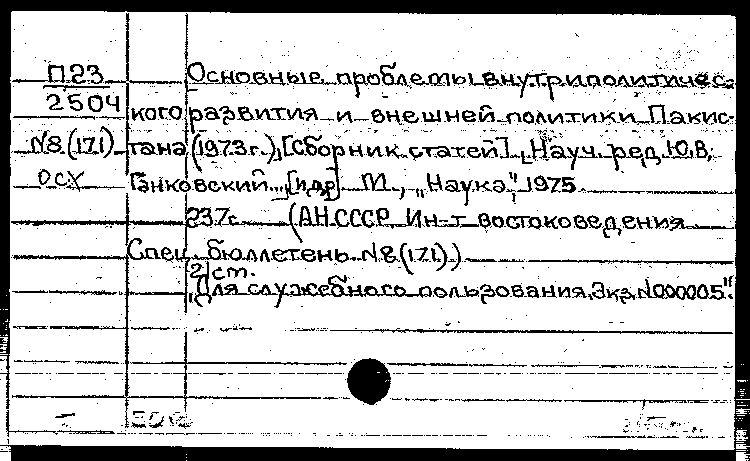 П23 Основные проблемы внутриполитичес-
2504 кого развития и внешней политики Пакис-
N8(171) тана (1973г.). [Сборник статей]. Науч. ред. Ю.В.
ОСХ Ганковский [и др.]. М., „Наука“, 1975
237с. (АН СССР. Ин-т востоковедения
Спец. бюллетень N8(171))
2 ст.
„Для служебного пользования, Экз. N000005“.